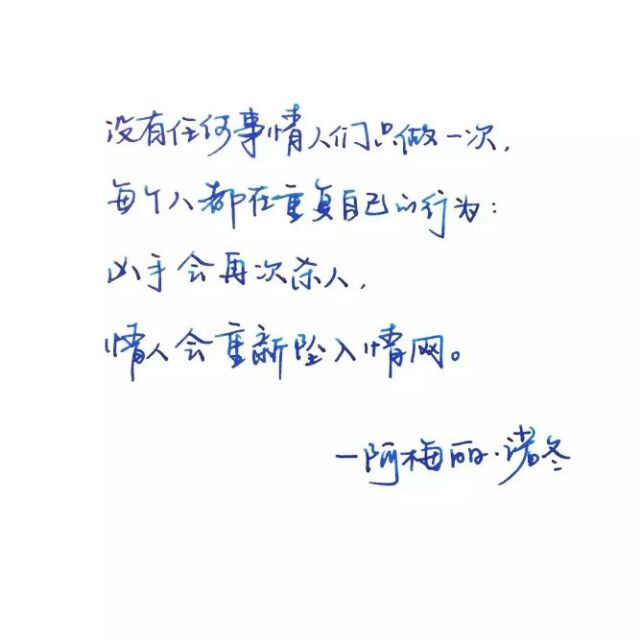 没有任何事情人们只做一次，
每个人都在重复自己的行为：
凶手会再次杀人，
情人会重新坠入情网。
—阿梅丽·诺冬